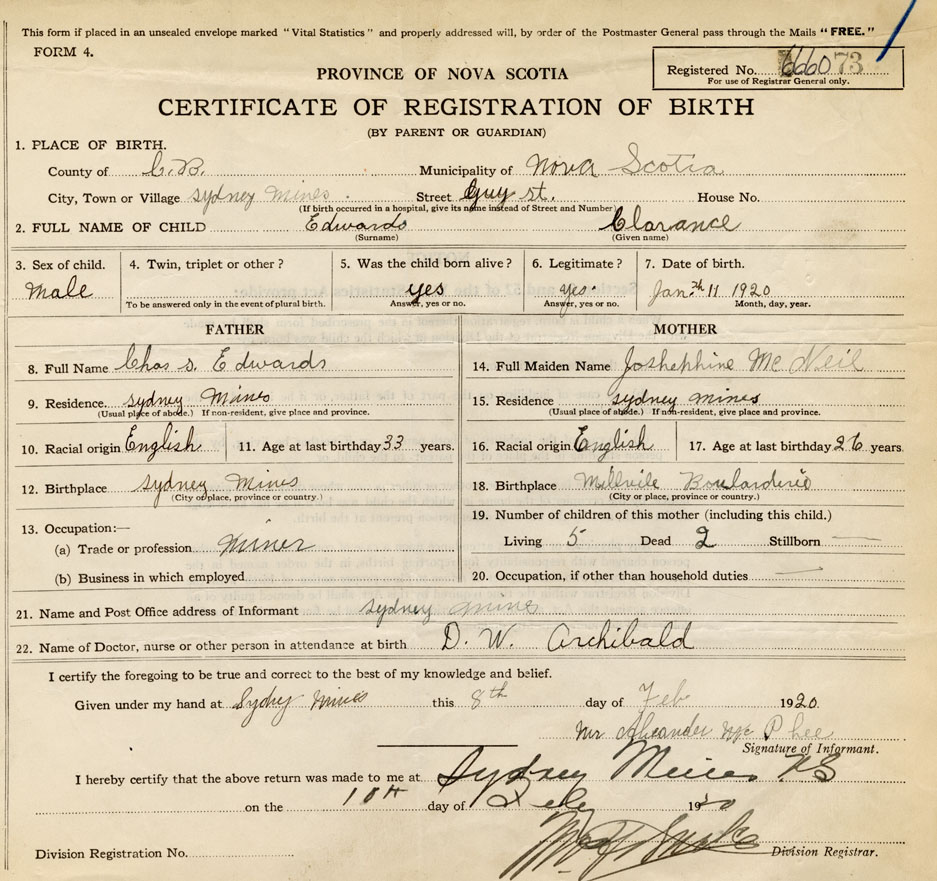 This form if placed in an unsealed envelope marked "Vital Statistics" and properly addressed will, by order of the Postmaster General pass through the Mails "FREE."
FORM 4.
PROVINCE OF NOVA SCOTIA
Registered No. 73
For use of Registrar General only.
CERTIFICATE OF REGISTRATION OF BIRTH
(BY PARENT OR GUARDIAN)
1. PLACE OF BIRTH.
County of C.B. Municipality of Nova Scotia
City, Town or Village Sydney Mines. Street Guy st. House No.
(If birth occurred in a hospital, give its name instead of Street and Number)
2. FULL NAME OF CHILD Edwards Clarance
(Surname) (Given name)
3. Sex of child. 4. Twin, triplet or other? 5. Was the child born alive? 6. Legitimate? 7. Date of birth.
Male yes yes. Jan. 11 1920
To be answered only in the event of plural birth. Answer, yes or no. Answer, yes or no. Month, day, year.
FATHER MOTHER
8. Full Name Chas s. Edwards 14. Full Maiden Name Joshephine Mc Neil
9. Residence. Sydney Mines 15. Residence Sydney Mines
(Usual place of abode.) If non-resident, give place and province. (Usual place of abode.) If non-resident, give place and province.
10. Racial origin English 11. Age at last birthday 33 years. 16. Racial origin English 17. Age at last birthday 26 years.
12. Birthplace Sydney Mines 18. Birthplace Millvile Boularderie
(City or place, province or country.) (City or place, province or country.)
13. Occupation:— 19. Number of children of this mother (including this child.)
(a) Trade or profession Miner Living 5 Dead 2 Stillborn —
(b) Business in which employed 20. Occupation, if other than household duties —
21. Name and Post Office address of Informant Sydney Mines
22. Name of Doctor, nurse or other person in attendance at birth D. W. Archibald
I certify the foregoing to be true and correct to the best of my knowledge and belief.
Given under my hand at Sydney Mines this 8th day of Feb 1920.
Mr Mc Phee
Signature of Informant.
I hereby certify that the above return was made to me at Sydney Mines NS
on the day of Feby 1920
Division Registration No. Division Registrar.